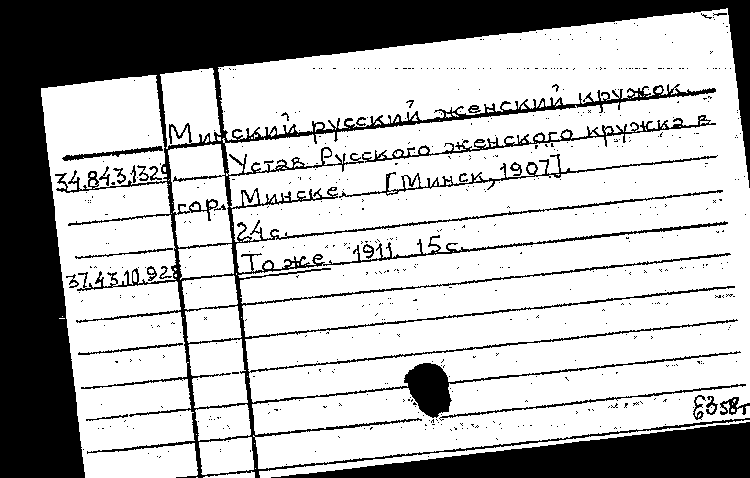 Минский русский женский кружок.
34.843.1329. Устав Русского женского кружка в
гор. Минске. [Минск, 1907].
24 с.
37.43.10.928 То же. 1911. 15 с.